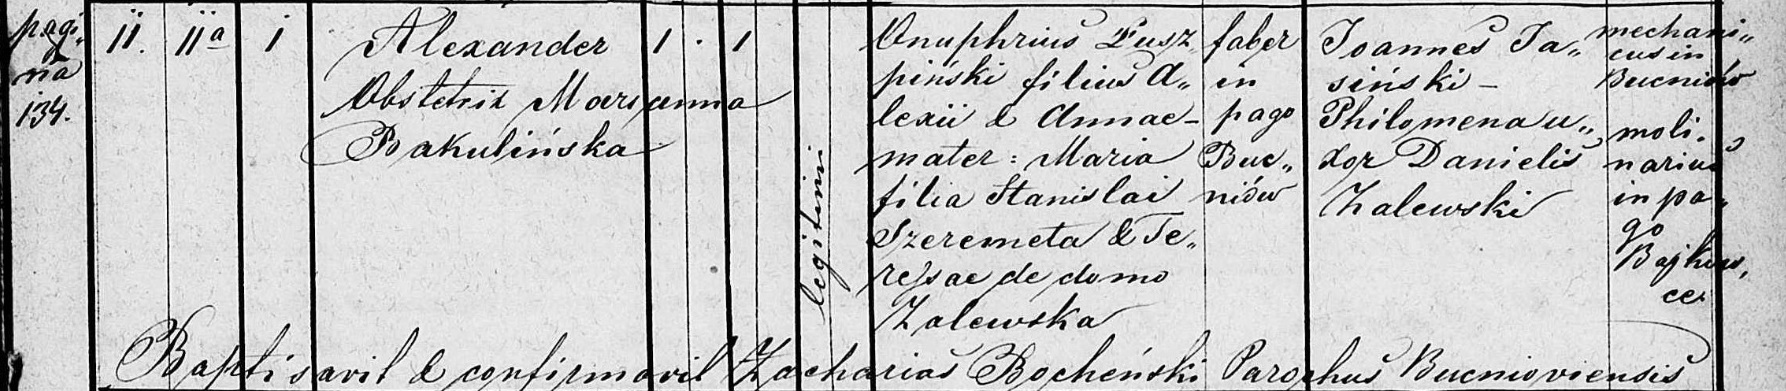 pagi„
na
134.
11. 11a 1
Alexander
Obstetrix Maryanna
Bakulińska
1 · 1
legitimi
Onuphrius Pusz„
piński filius A„
lexii & Annae –
mater: Maria
filia Stanislai
Szeremeta & Te„
ressae de domo
Zalewska
faber
in
pago
Buc„
niów
Joannes Ja„
siński –
Philomena u„
xor Danielis
Zalewski
mechani„
cus in
Bucniów
moli„
narius
in pa„
go
Bajkow„
ce.
Baptisavit & confirmavit Zacharias Bocheński Parochus Bucnioviensis